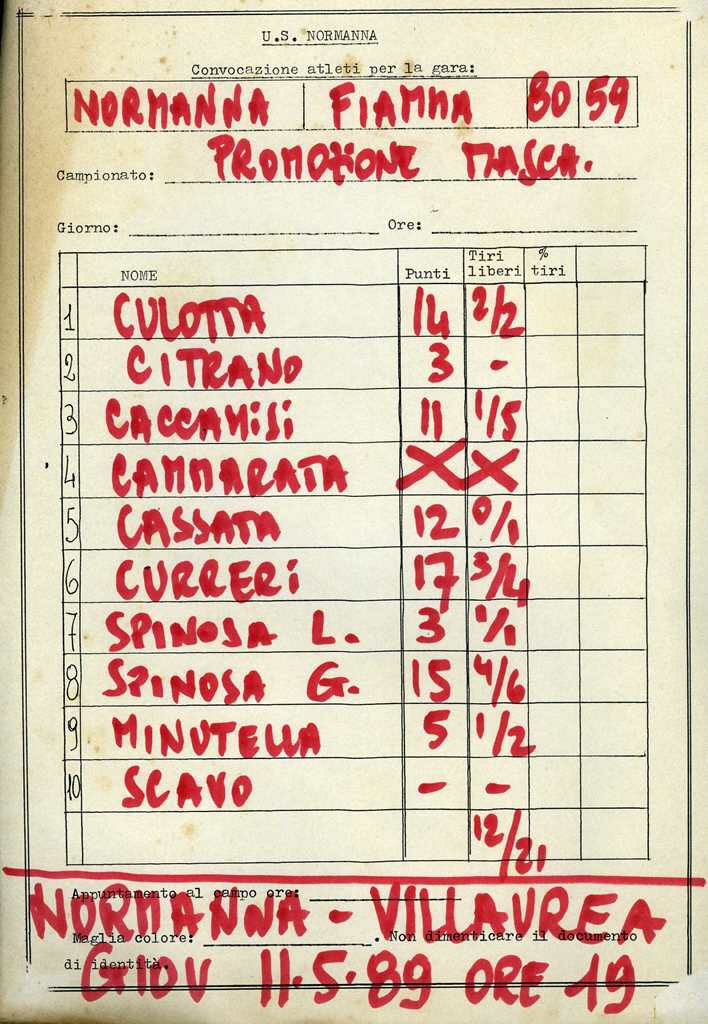 U.S. NORMANNA
Convocazione atleti per la gara:
NORMANNA FIAMMA 80 59
Campionato: PROMOZIONE MASCH.
Giorno: Ore:
NOME Punti Tiri liberi % tiri
1 CULOTTA 14 2/2
2 CITRANO 3 -
3 CACCAMISI 11 1/5
4 CAMMARATA X X
5 CASSATA 12 0/1
6 CURRERI 17 3/4
7 SPINOSA L. 3 1/1
8 SPINOSA G. 15 4/6
9 MINUTELLA 5 1/2
10 SCAVO - -
12/21
Appuntamento al campo ore:
NORMANNA - VILLAUREA
Maglia colore: . Non dimenticare il documento
di identità.
GIOV 11.5.89 ORE 19